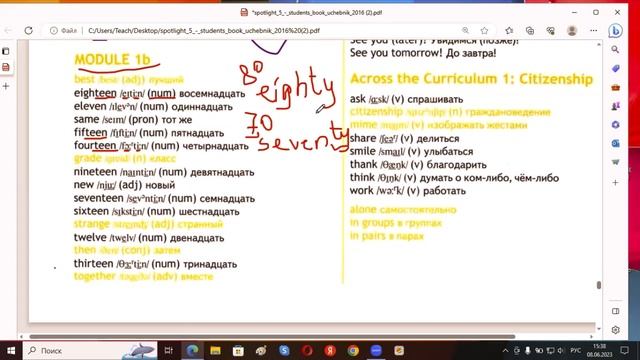 *spotlight_5_-_students_book_uchebnik_2016 (2).pdf
Файл
C:/Users/Teach/Desktop/spotlight_5_-_students_book_uchebnik_2016%20(2).pdf
MODULE 1b
best /best/ (adj) лучший
eighteen /eɪtiːn/ (num) восемнадцать
eleven /ɪlevən/ (num) одиннадцать
same /seɪm/ (pron) тот же
fifteen /fɪftiːn/ (num) пятнадцать
fourteen /fɔːʳtiːn/ (num) четырнадцать
grade /greɪd/ (n) класс
nineteen /naɪntiːn/ (num) девятнадцать
new /njuː/ (adj) новый
seventeen /sevəntiːn/ (num) семнадцать
sixteen /sɪkstiːn/ (num) шестнадцать
strange /streɪndʒ/ (adj) странный
twelve /twelv/ (num) двенадцать
then /ðen/ (conj) затем
thirteen /θɜːʳtiːn/ (num) тринадцать
together /təgeðə/ (adv) вместе
80
eighty
70
seventy
See you (later)! Увидимся (позже)!
See you tomorrow! До завтра!
Across the Curriculum 1: Citizenship
ask /ɑːsk/ (v) спрашивать
citizenship /sɪtɪzənʃɪp/ (n) граждановедение
mime /maɪm/ (v) изображать жестами
share /ʃeəʳ/ (v) делиться
smile /smaɪl/ (v) улыбаться
thank /θæŋk/ (v) благодарить
think /θɪŋk/ (v) думать о ком-либо, чём-либо
work /wɜːʳk/ (v) работать
alone самостоятельно
in groups в группах
in pairs в парах
РУС
15:38
08.06.2023